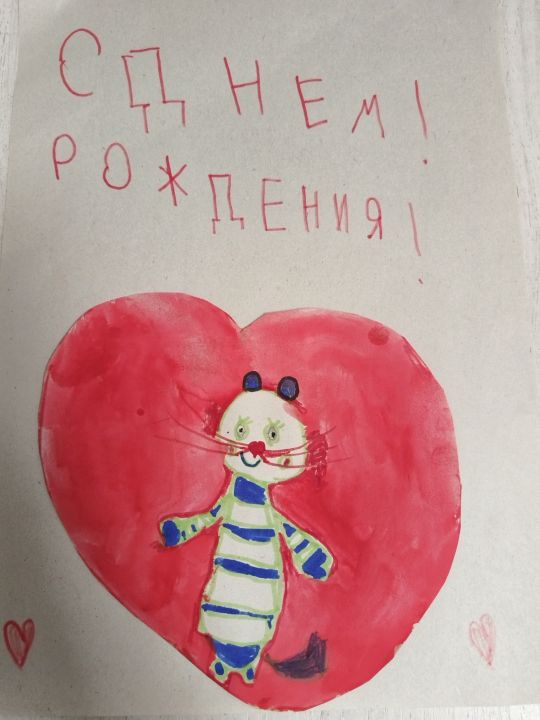 С ДНЕМ!
РОЖДЕНИЯ!